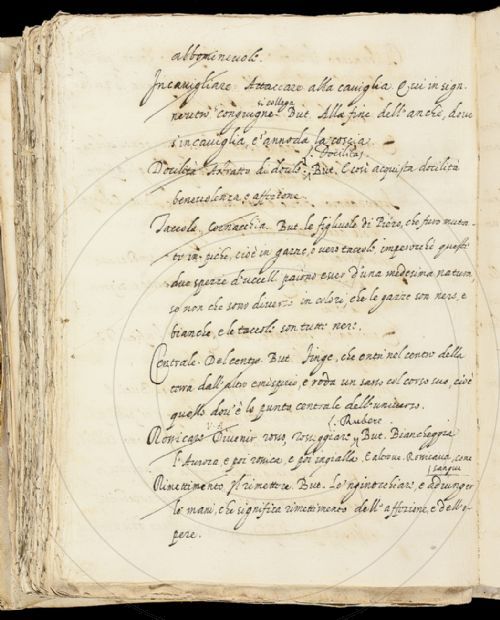 abbominevole.
Incavigliare. Attaccare alla caviglia. Qui in sign.
neutro congiugne. But. Alla fine dell'anche, dove
si collega
s'incaviglia, e s'annoda la coscia.
Docilitas
Docilità. Astratto di docile. But. E così acquista docilità
benevolenza e affezione.
Taccole. Cornacchia. But. le figliuole di Piero, che furo muta-
te in piche, cioè in gazze, o vero taccole imperocchè queste
due spezie d'uccelli paiono esser d'una medesima natura,
se non che sono diverse in colore, che le gazze son nere, e
bianche, e le taccole son tutte nere.
Centrale. Del centro. But. finge, che entri nel centro della
terra dall'altro emispezio, e roda un sasso col corso suo, cioè
quello dov'è lo punto centrale dell'universo.
Rubere
Divenir rosso, rosseggiare. But. Biancheggia
l'Aurora, e poi e poi ingialla. E altrove. come
sangue
Rimettimento. Il rimettere. But. Lo 'nginocchiare, e adiunger
le mani, che significa rimettimento dell'affezione, e dell'o-
pere.